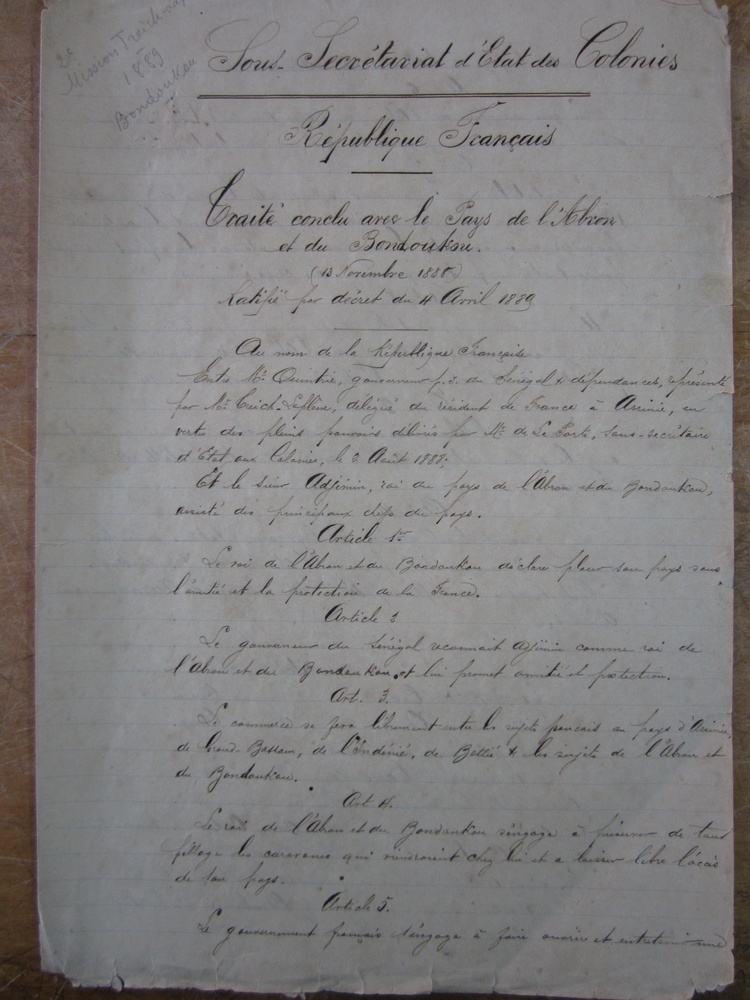 2e
Mission Treich-Lap
1889
Bondoukou
Sous-Secrétariat d'Etat des Colonies
République Français
Traité conclu avec le Pays de l'Abron
et du Bondoukou.
(13 Novembre 1888)
Ratifié par décret du 4 Avril 1889
Au nom de la République Française
Entre Mr. Quintrie, gouverneur p.i. du Sénégal & dépendances, représenté
par Mr. Treich-Laplène, délégué du résident de France à Assinie, en
vertu des pleins pouvoirs délivrés par Mr. de La Porte, Sous-secrétaire
d'Etat aux Colonies, le 2 Août 1888;
Et le Sieur Adjimin, roi du pays de l'Abron et du Bondoukou,
assisté des principaux chefs du pays.
Article 1er
Le roi de l'Abron et du Bondoukou déclare placer son pays sous
l'amitié et la protection de la France.
Article 2
Le gouverneur du Sénégal reconnait Adjimin comme roi de
l'Abron et du Bondoukou et lui promet amitié et protection.
Art. 3.
Le commerce se fera librement entre les sujets français au pays d'Assinie,
de Grand-Bassam, de l'Indénié, de Bettié & les sujets de l'Abron et
du Bondoukou.
Art 4.
Le roi de l'Abron et du Bondoukou s'engage à préserver de tout
pillage les caravanes qui viendraient chez lui et à laisser libre l'accès
de son pays.
Article 5.
Le gouvernement français s'engage à faire ouvrir et entretenir une